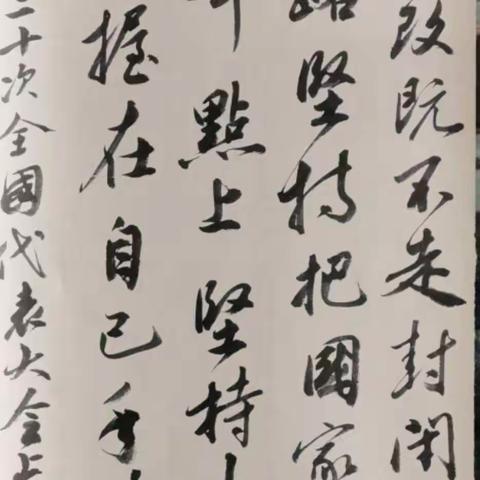 改既不走封闭
路堅持把國家
點上堅持
握在自己手
二十次全國代表大会上